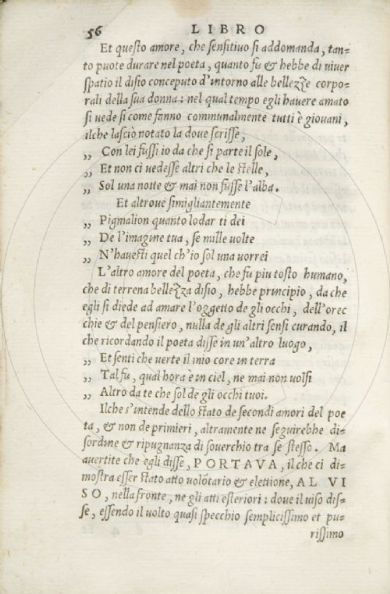 56 LIBRO
Et questo amore, che sensitiuo si addomanda, tan-
to puote durare nel poeta, quanto fu & hebbe di uiuer
spatio il disio conceputo d'intorno alle bellezze corpo-
rali della sua donna: nel qual tempo egli hauere amato
si uede si come fanno communalmente tutti è giouani,
ilche lasciò notato la doue scrisse,
„ Con lei fuss'io da che si parte il sole,
„ Et non ci uedesse altri che le stelle,
„ Sol una notte & mai non fusse l'alba.
Et altroue simigliantemente
„ Pigmalion quanto lodar ti dei
„ De l'imagine tua, se mille uolte
„ N'hauesti quel ch'io sol una uorrei
L'altro amore del poeta, che fu piu tosto humano,
che di terrena bellezza disio, hebbe principio, da che
egli si diede ad amare l'oggetto de gli occhi, dell'orec
chie & del pensiero, nulla de gli altri sensi curando, il
che ricordando il poeta disse in un'altro luogo,
„ Et senti che uerte il mio core in terra
„ Tal fu, qual hora è in ciel, ne mai non uolsi
„ Altro da te che sol de gli occhi tuoi.
Ilche s'intende dello stato de secondi amori del poe
ta, & non de primieri, altramente ne seguirebbe di-
sordine & ripugnanza di souerchio tra se stesso. Ma
auertite che egli disse, PORTAVA, il che ci di-
mostra esser stato atto volōtario & elettione, AL VI
SO, nella fronte, ne gli atti esteriori: doue il uiso dis-
se, essendo il uolto quasi specchio semplicissimo et pu-
rissimo